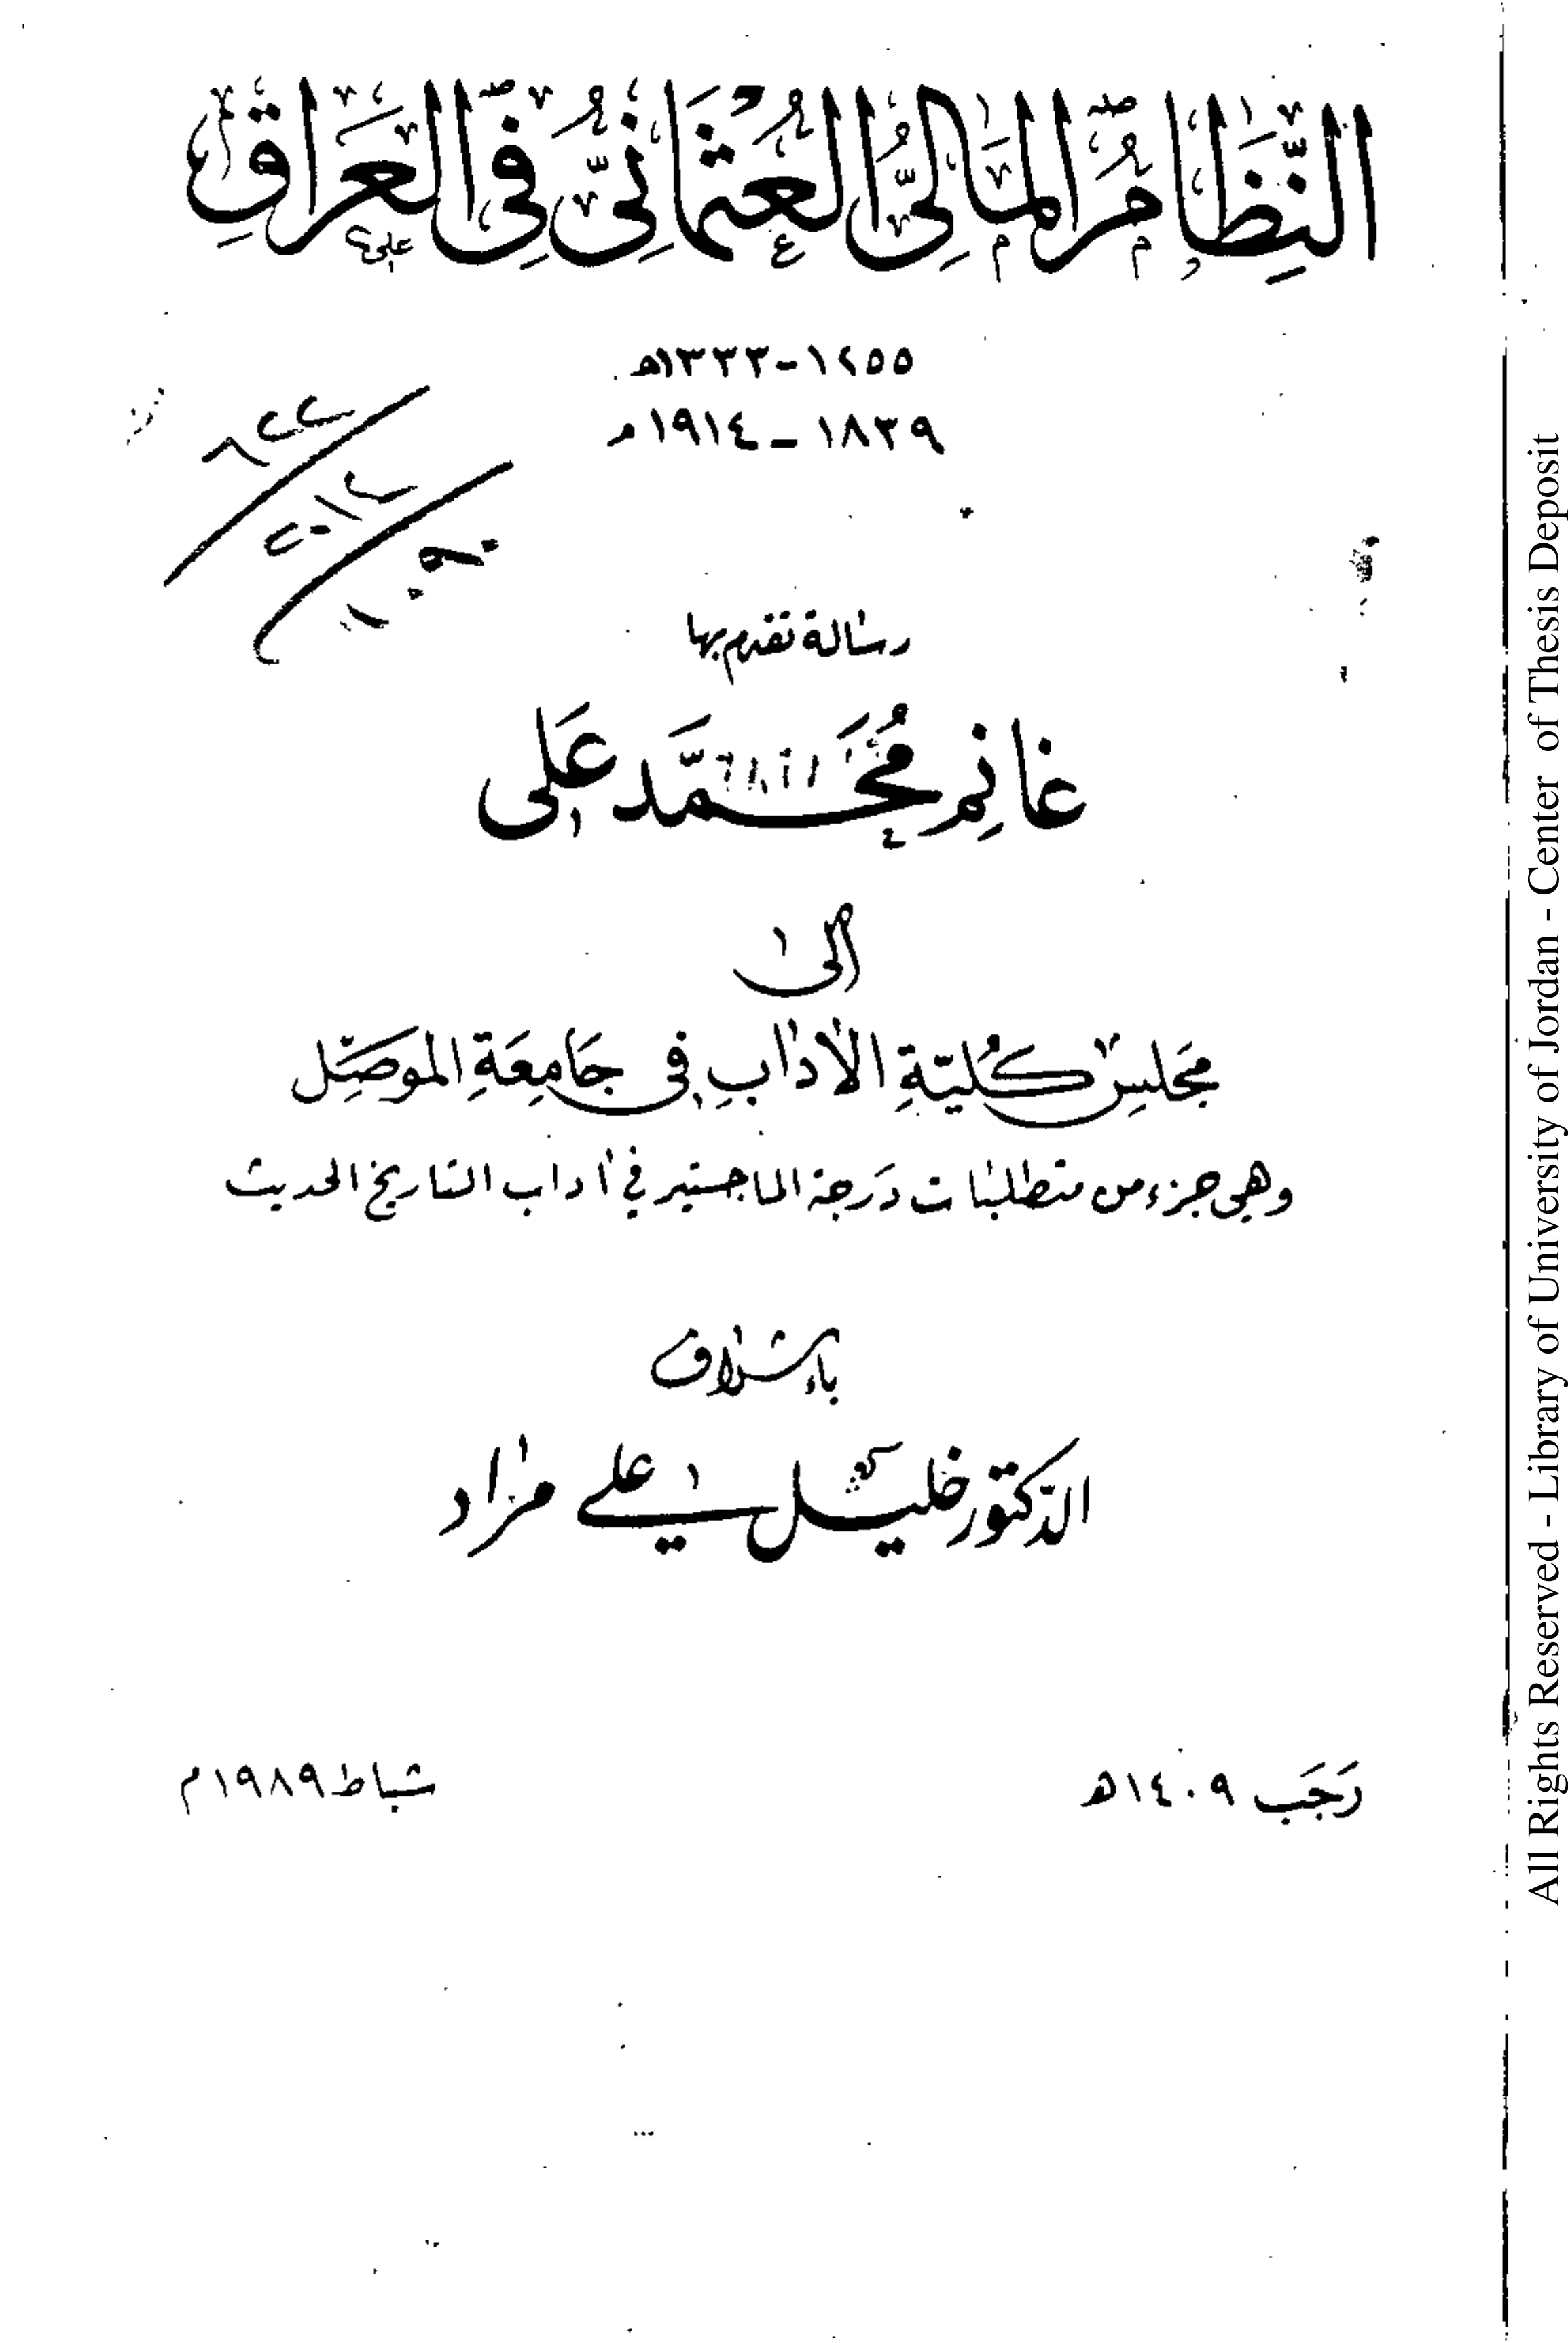 النِّظَامُ المَالِيُّ العُثْمَانِيُّ فِي العِرَاقِ
١٢٥٥-١٣٣٣هـ
١٨٣٩-١٩١٤م
رسالة تقدم بها
غانم مُحَمَّد عَلي
إلى
مَجلس كُليّةِ الآدابِ في جَامِعَةِ الموصِل
وهي جزء من متطلبات دَرجة الماجستير في آداب التاريخ الحديث
بإشراف
الدّكتور خليل علي مراد
رَجَب ١٤٠٩هـ
شباط ١٩٨٩م
All Rights Reserved - Library of University of Jordan - Center of Thesis Deposit